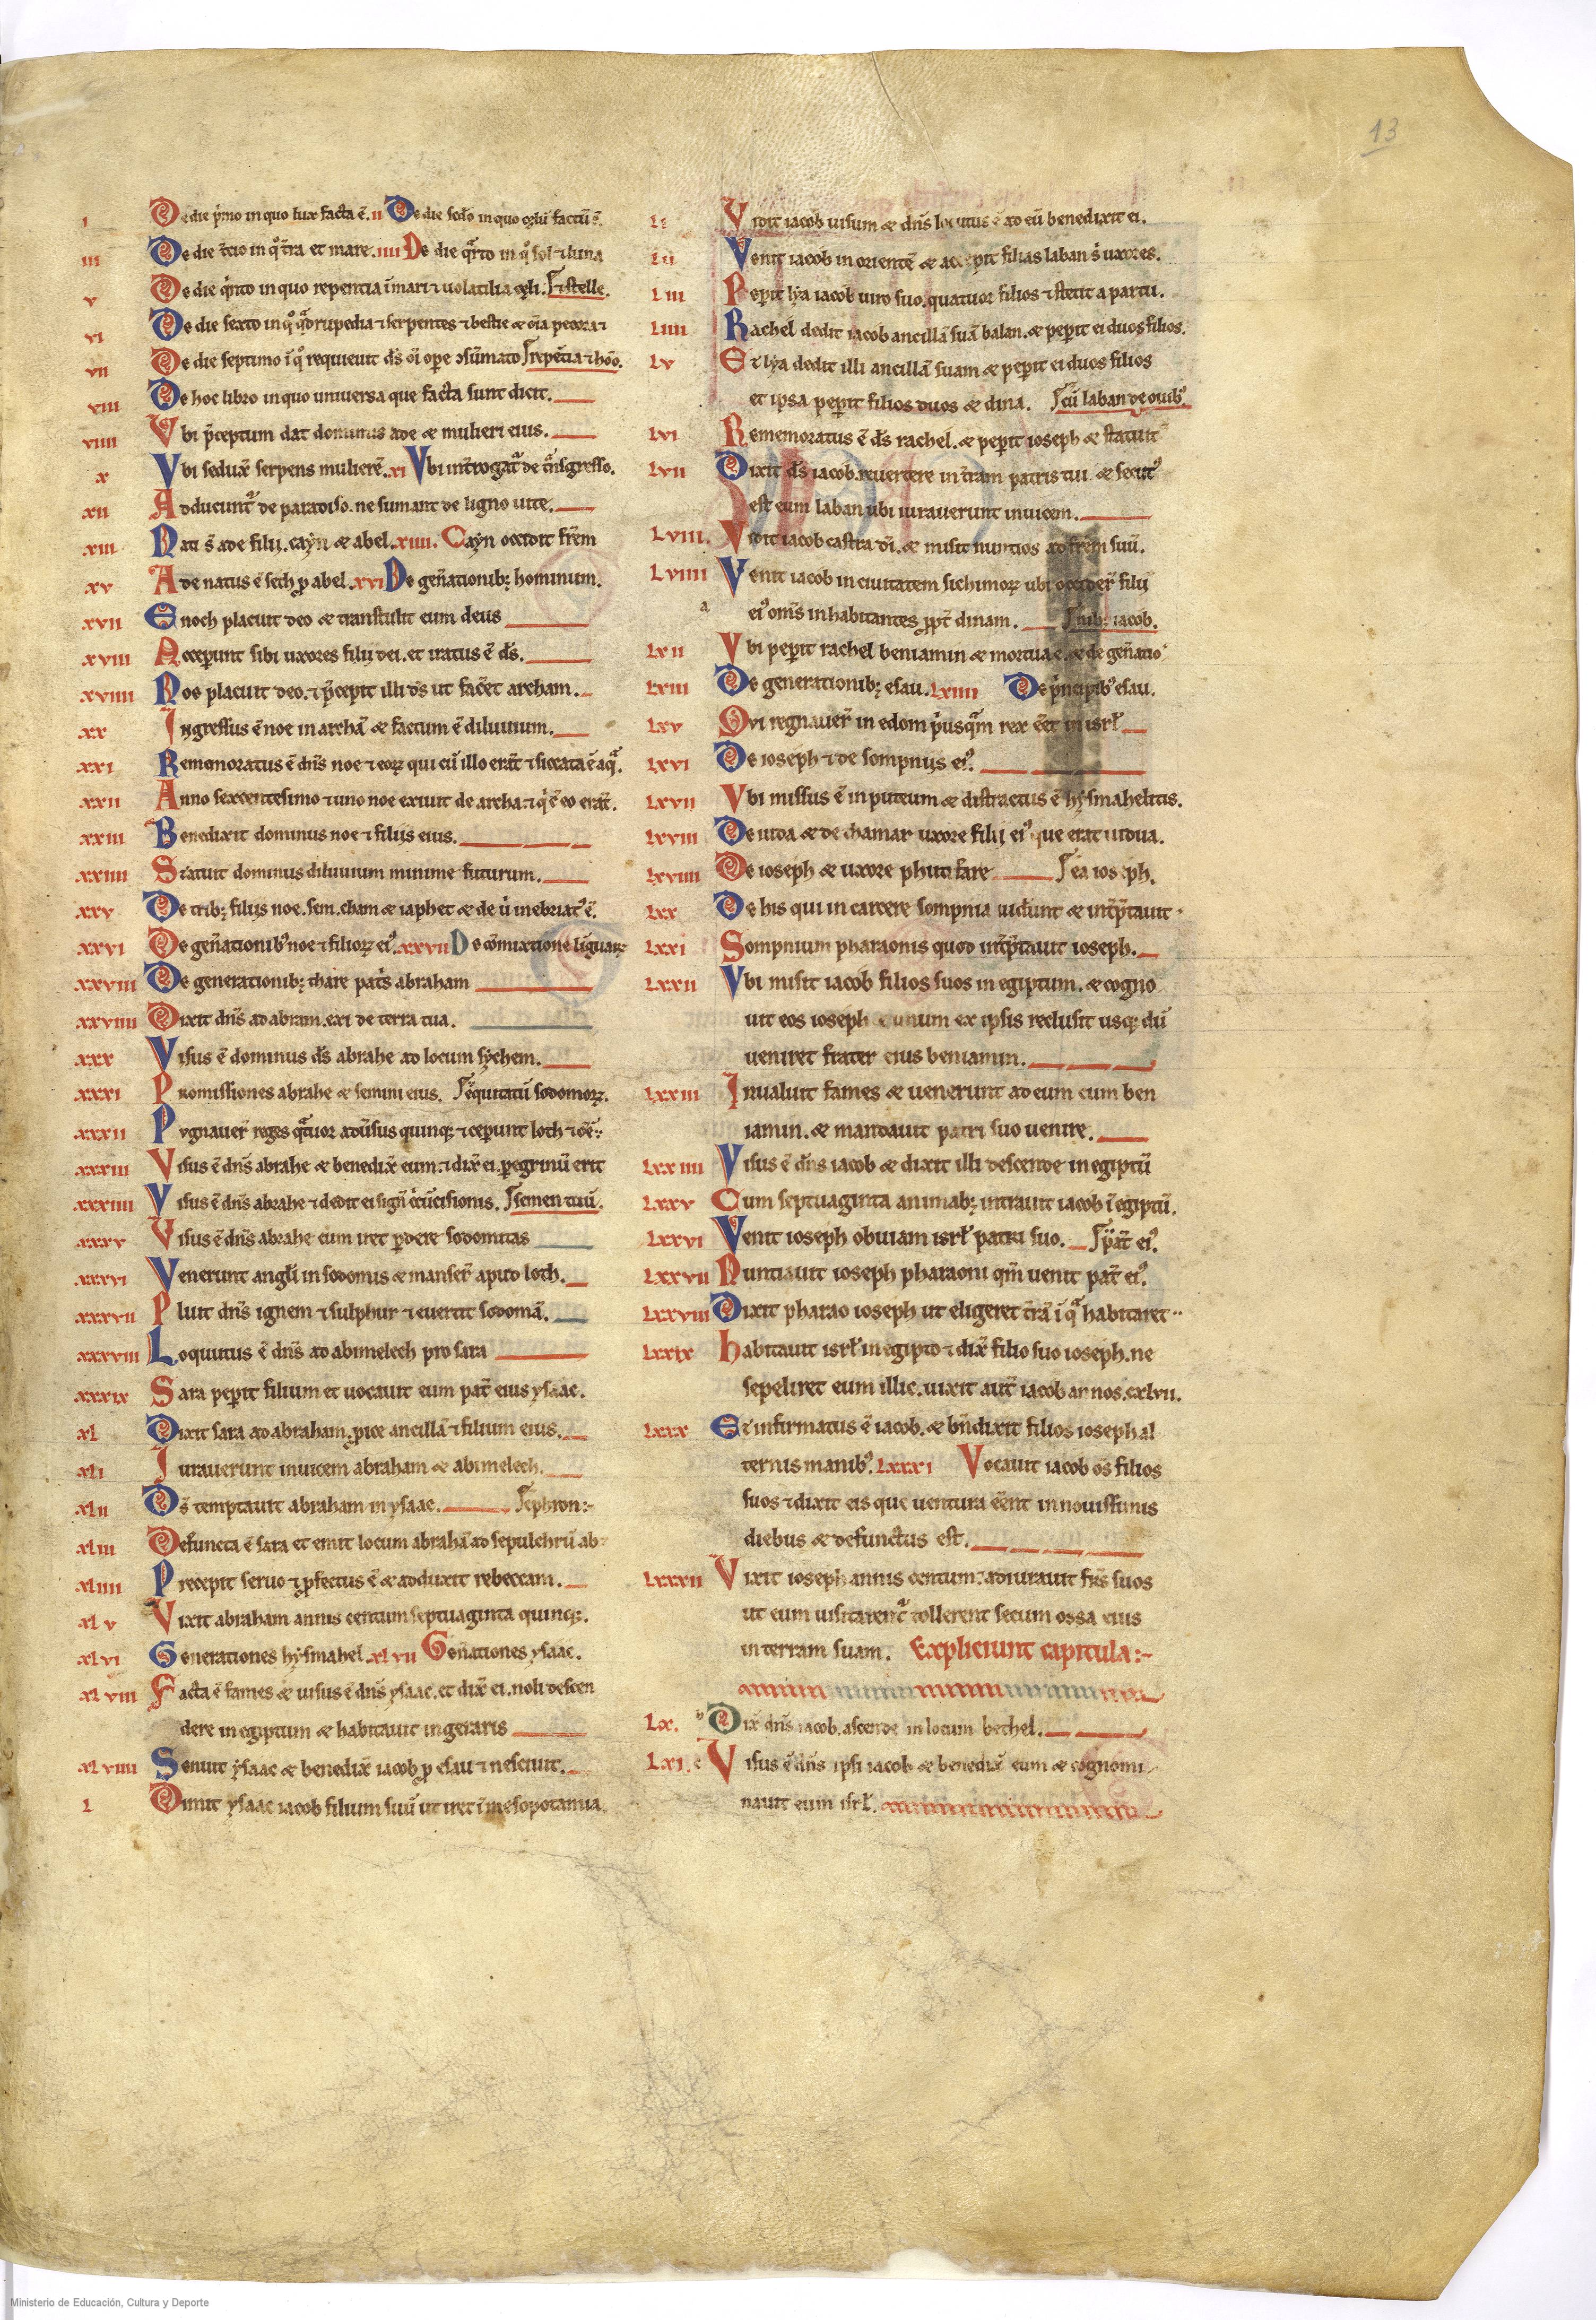 13
I De die p̄mo in quo lux facta ē. II De die sc̄do in quo cęlū factū ē.
III De die t̄cio in qͦ t̄ra et mare. IIII De die qͣrto in qͦ sol ⁊ luna
V De die qⁱnto in quo reptentia ī mari ⁊ uolatilia cęli. ⁊ stelle.
VI De die sexto in qͦ qͣdrupedia ⁊ serpentes ⁊ bestie & oīa pecora ⁊
VII De die septimo ī qͦ requieuit d̄s oī oꝑe ꝯsūmato reptētia ⁊ hōō.
VIII De hoc libro in quo uniuersa que facta sunt dicit.
VIIII Vbi p̄ceptum dat dominus ade & mulieri eius.
X Vbi sedux̄ serpens mulierē. XI Vbi int̄rogatᷓ de tᷓnsgresso.
XII Adducunt᷑ de paradiso. ne sumant de ligno uite.
XIII Nati s̄ ade filii. cayn & abel. XIIII. Cayn occidit fr̄em
XV Ade natus ē seth ꝓ abel. XVI De gen̄ationib; hominum.
XVII Enoch placuit deo & transtulit eum deus
XVIII Acceꝑunt sibi uxores filii dei. et iratus ē d̄s.
XVIIII Noe placuit deo. ⁊ p̄cepit illi d̄s ut fac̄et archam.
XX Ingressus ē noe in archā & factum ē diluuium.
XXI Rememoratus ē dn̄s noe ⁊ eoꝝ qui cū illo erāt ⁊ siccata ē aqͣ.
XXII Anno sexcentesimo ⁊ uno noe exiuit de archa ⁊ qⁱ c̄ eo erāt.
XXIII Benedixit dominus noe ⁊ filiis eius.
XXIIII Statuit dominus diluuium minime futurum.
XXV De trib; filiis noe. sem. cham & iaphet & de uⁱ inebriat᷒ ē.
XXVI De gen̄ationib᷒ noe ⁊ filioꝝ ei᷒. XXVII De cōmixtione liguaꝝ
XXVIII De generationib; thare pat̄s abraham
XXVIIII Dixit dn̄s ad abram. exi de terra tua.
XXX Visus ē dominus d̄s abrahe ad locum sychem.
XXXI Promissiones abrahe & semini eius. equitatū sodomoꝝ.
XXXII Pugnauer̄ reges qͣtuor adūsus quinq; ⁊ ceꝑunt loth ⁊ oēm
XXXIII Visus ē dn̄s abrahe & benedix̄ eum. ⁊ dix̄ ei. ꝑegrinū erit
XXXIIII Visus ē dn̄s abrahe ⁊ dedit ei signū cⁱcūcisionis. semen tuū.
XXXV Visus ē dn̄s abrahe cum iret ꝑdere sodomitas
XXXVI Venerunt angl̄i in sodomis & manser̄ apud loth.
XXXVII Pluit dn̄s ignem ⁊ sulphur ⁊ euertit sodomā.
XXXVIII Loquutus ē dn̄s ad abimelech pro sara
XXXIX Sara peꝑit filium et uocauit eum pat̄ eius ysaac.
XL Dixit sara ad abraham. ꝓice ancillā ⁊ filium eius.
XLI Iurauerunt inuicem abraham & abimelech.
XLII D̄s temptauit abraham in ysaac. ephron:-
XLIII Defuncta ē sara et emit locum abrahā ad sepulchrū ab
XLIIII Precepit seruo ⁊ ꝓfectus ē & adduxit rebeccam.
XLV Vixit abraham annis centum septuaginta quinq;.
XLVI Generationes hysmahel. XLVII Gen̄ationes ysaac.
XLVIII Facta ē fames & uisus ē dn̄s ysaac. et dix̄ ei. noli descen
dere in egiptum & habitauit in geraris
XLVIIII Senuit ysaac & benedix̄ iacob ꝓ esau ⁊ nesciuit.
L Dimit ysaac iacob filium suū ut iret ī mesopotamia.
LI Vidit iacob uisum & dn̄s locutus ē ad eū benedixit ei.
LII Venit iacob in orientē & accepit filias laban s̄ uxores.
LIII Peꝑit lya iacob uiro suo. quatuor filios ⁊ stetit a partu.
LIIII Rachel dedit iacob ancillā suā balan. & peꝑit ei duos filios.
LV Et lya dedit illi ancillā suam & peꝑit ei duos filios
et ipsa peꝑit filios duos & dina. cū laban de ouib᷒.
LVI Rememoratus ē d̄s rachel. & peꝑit ioseph & statuit
LVII Dixit d̄s iacob. reuertere in t̄ram patris tui. & secut᷒
est eum laban ubi iurauerunt inuicem.
LVIII. Vidit iacob castra dī. & misit nuntios ad fr̄em suū.
LVIIII Venit iacob in ciuitatem sichimoꝝ ubi occider̄ filii
a ei᷒ om̄s inhabitantes ꝓpt̄ dinam. nib; iacob.
LXII Vbi peꝑit rachel beniamin & mortua ē. & de gen̄atio
LXIII De generationib; esau. LXIIII De pⁱncipib᷒ esau.
LXV Qui regnauer̄ in edom pⁱusqͣm rex eēt in isrl̄
LXVI De ioseph ⁊ de sompniis ei᷒.
LXVII Vbi missus ē in puteum & distractus ē hysmahelitis.
LXVIII De iuda & de thamar uxore filii ei᷒ que erat uidua.
LXVIIII De ioseph & uxore phutifare ea ioseph.
LXX De his qui in carcere sompnia uidūnt & int̄p̄tauit
LXXI Sompnium pharaonis quod int̄p̄tauit ioseph.
LXXII Vbi misit iacob filios suos in egiptum. & cogno
uit eos ioseph & unum ex ipsis reclusit usq; dū
ueniret frater eius beniamin.
LXXIII Inualuit fames & uenerunt ad eum cum ben
iamin. & mandauit patri suo uenire.
LXXIIII Visus ē dn̄s iacob & dixit illi descende in egiptū
LXXV Cum septuaginta animab; intrauit iacob ī egiptū.
LXXVI Venit ioseph obuiam isrl̄ patri suo. pat̄ ei᷒.
LXXVII Nuntiauit ioseph pharaoni qm̄ uenit pat̄ ei᷒.
LXXVIII Dixit pharao ioseph ut eligeret t̄rā ī qͣ habitaret
LXXIX habitauit isrl̄ in egipto ⁊ dix̄ filio suo ioseph. ne
sepeliret eum illic. uixit aut̄ iacob annos. cxlvii.
LXXX Et infirmatus ē iacob. & bn̄dixit filios ioseph al
ternis manib᷒. LXXXI Vocauit iacob os̄ filios
suos ⁊ dixit eis que uentura eēnt in nouissimis
diebus & defunctus est.
LXXXII Vixit ioseph annis centum. ⁊ adiurauit fr̄s suos
ut eum uisitarent ⁊ tollerent secum ossa eius
in terram suam. Expliciunt capitula:-
LX. b Dix̄ dn̄s iacob. ascende in locum bethel.
LXI. c Visus ē dn̄s ipsi iacob & benedix̄ eum & cognomi
nauit eum isrl̄.
Ministerio de Educación, Cultura y Deporte